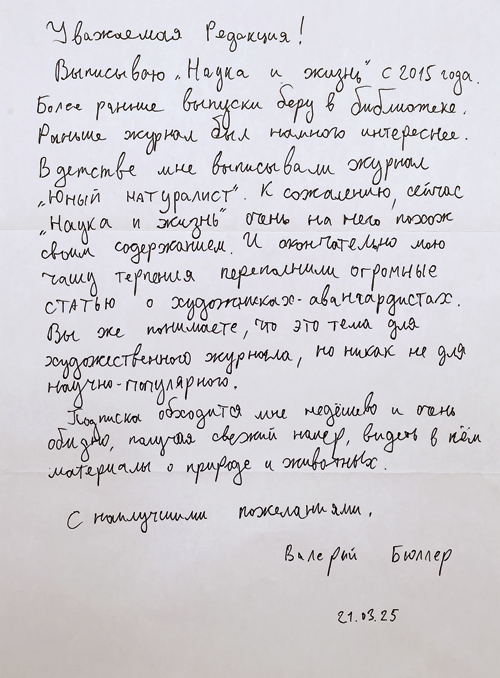 Уважаемая Редакция!
Выписываю „Наука и жизнь" с 2015 года.
Более ранние выпуски беру в библиотеке.
Раньше журнал был намного интереснее.
В детстве мне выписывали журнал
„Юный натуралист". К сожалению, сейчас
„Наука и жизнь" очень на него похож
своим содержанием. И окончательно мою
чашу терпения переполнили огромные
статьи о художниках-авангардистах.
Вы же понимаете, что это тема для
художественного журнала, но никак не для
научно-популярного.
Подписка обходится мне недёшево и очень
обидно, получая свежий номер, видеть в нём
материалы о природе и животных.
С наилучшими пожеланиями.
Валерий Бюллер
21.03.25